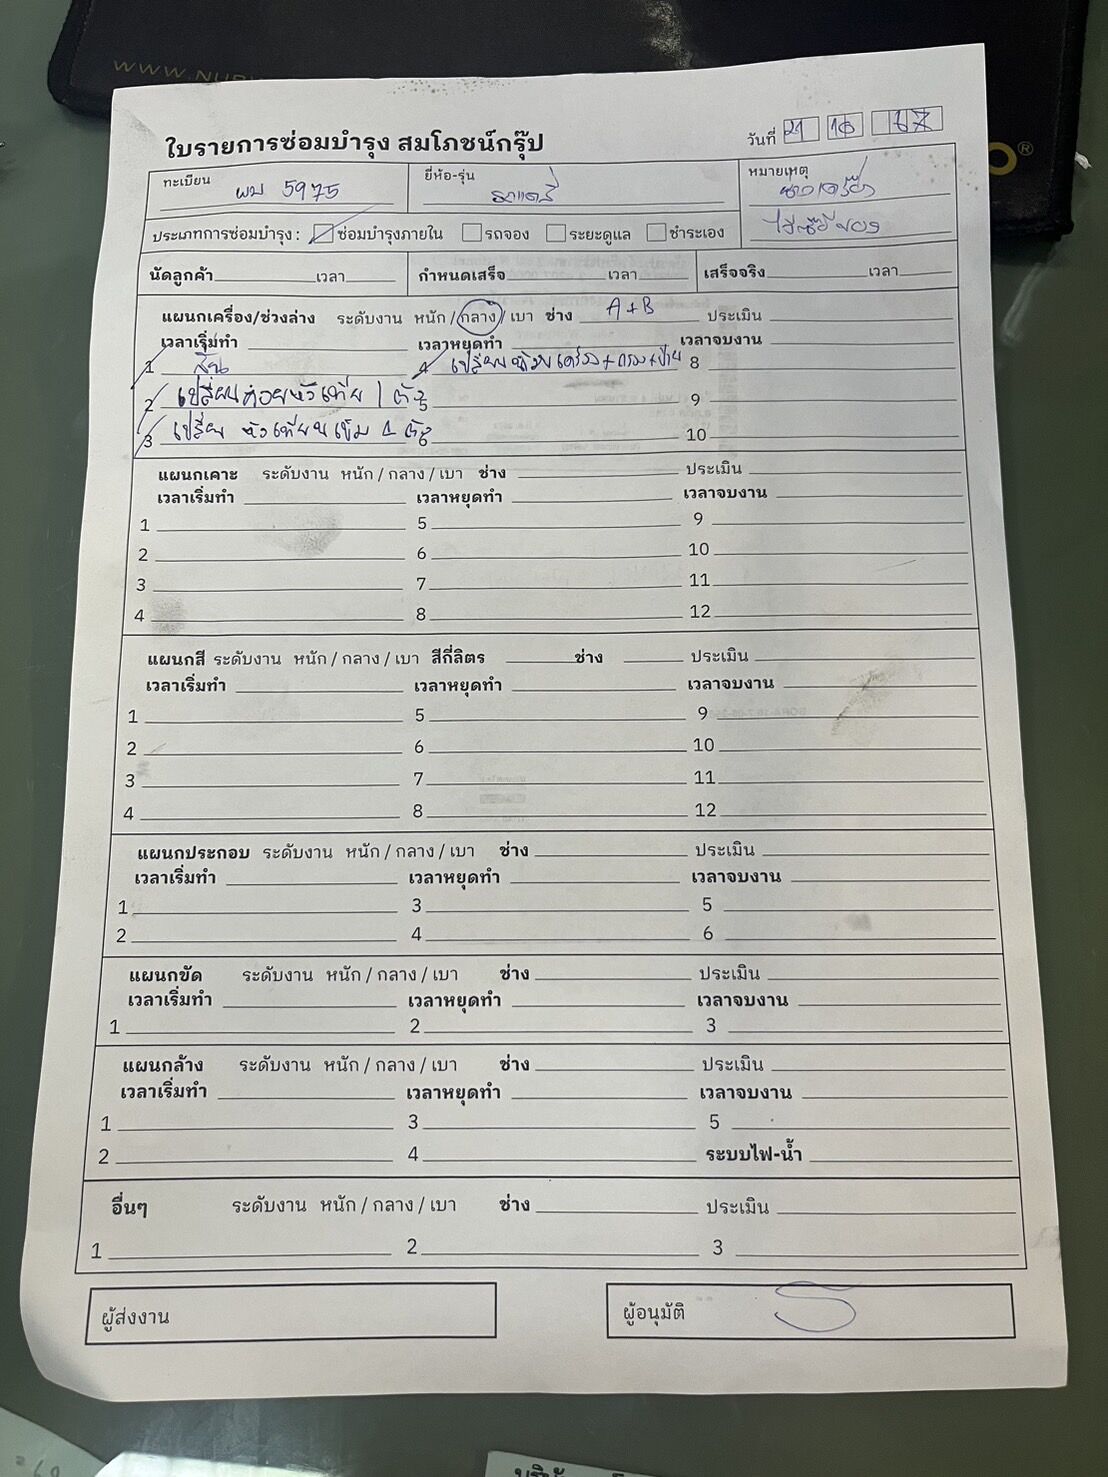 WWW.NU
ใบรายการซ่อมบำรุง สมโภชน์กรุ๊ป
วันที่ 21 10 67
ทะเบียน ผบ 5975
ยี่ห้อ-รุ่น
หมายเหตุ
ประเภทการซ่อมบำรุง : ซ่อมบำรุงภายใน รถจอง ระยะดูแล ชำระเอง
นัดลูกค้า เวลา กำหนดเสร็จ เวลา เสร็จจริง เวลา
แผนกเครื่อง/ช่วงล่าง ระดับงาน หนัก / กลาง / เบา ช่าง A+B ประเมิน
เวลาเริ่มทำ เวลาหยุดทำ เวลาจบงาน
1 4 เปลี่ยน 8
2 เปลี่ยนคอยหัวเทียน 1 ตัว 5 9
3 เปลี่ยน หัวเทียนเข็ม 1 ตัว 6 10
แผนกเคาะ ระดับงาน หนัก / กลาง / เบา ช่าง ประเมิน
เวลาเริ่มทำ เวลาหยุดทำ เวลาจบงาน
1 5 9
2 6 10
3 7 11
4 8 12
แผนกสี ระดับงาน หนัก / กลาง / เบา สีกี่ลิตร ช่าง ประเมิน
เวลาเริ่มทำ เวลาหยุดทำ เวลาจบงาน
1 5 9
2 6 10
3 7 11
4 8 12
แผนกประกอบ ระดับงาน หนัก / กลาง / เบา ช่าง ประเมิน
เวลาเริ่มทำ เวลาหยุดทำ เวลาจบงาน
1 3 5
2 4 6
แผนกขัด ระดับงาน หนัก / กลาง / เบา ช่าง ประเมิน
เวลาเริ่มทำ เวลาหยุดทำ เวลาจบงาน
1 2 3
แผนกล้าง ระดับงาน หนัก / กลาง / เบา ช่าง ประเมิน
เวลาเริ่มทำ เวลาหยุดทำ เวลาจบงาน
1 3 5
2 4 ระบบไฟ-น้ำ
อื่นๆ ระดับงาน หนัก / กลาง / เบา ช่าง ประเมิน
1 2 3
ผู้ส่งงาน ผู้อนุมัติ